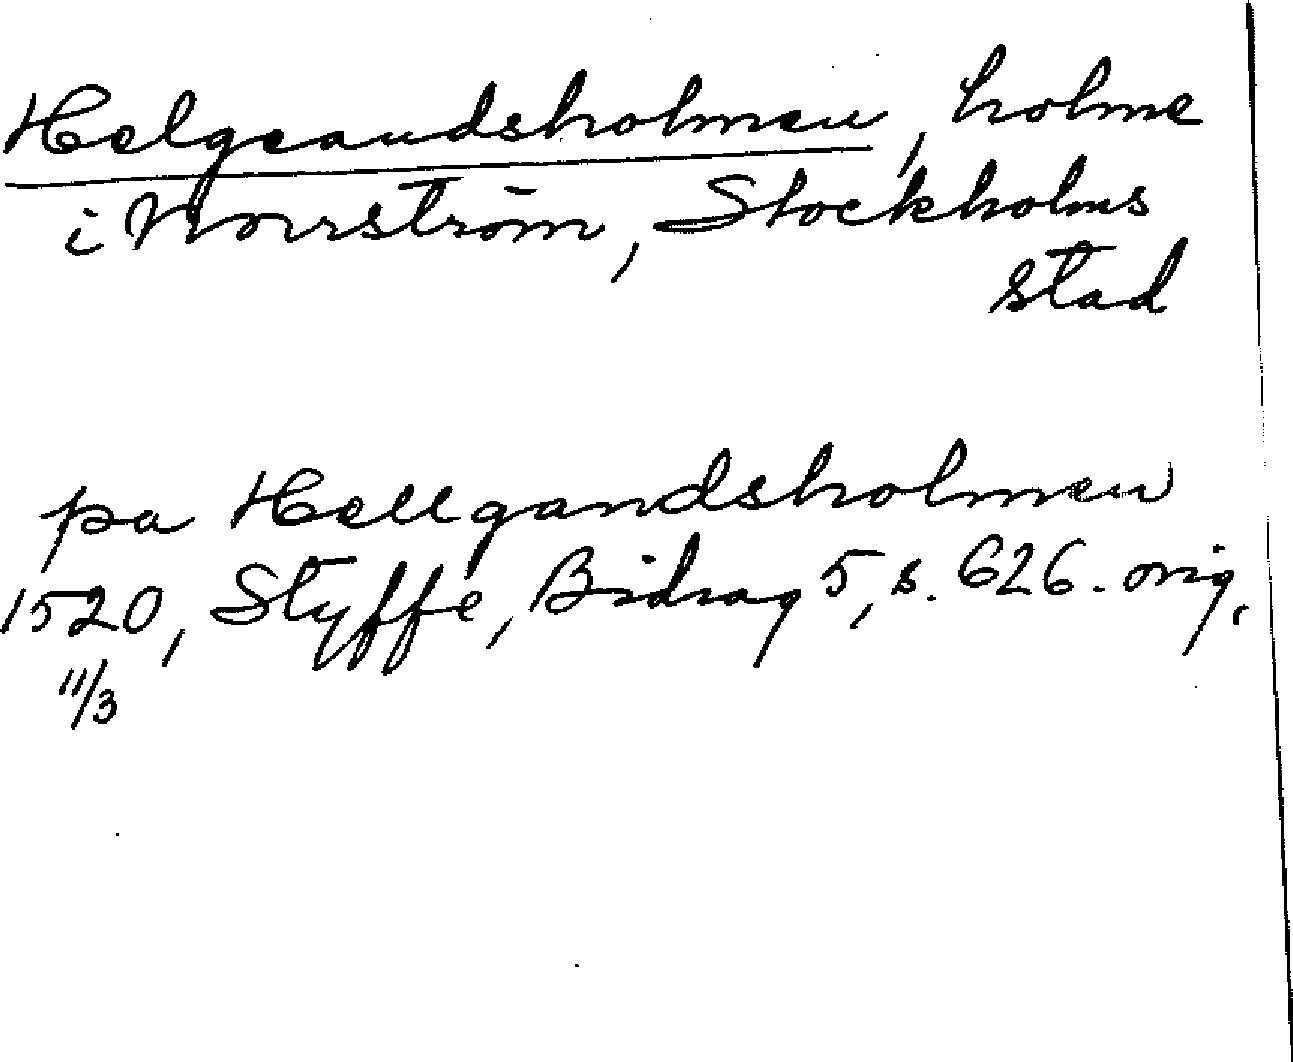 Helgeandsholmen, holme
i Norrström, Stockholms
stad
pa Hellgandsholmen
1520, Styffe, Bidrag 5, s. 626. orig.
11/3